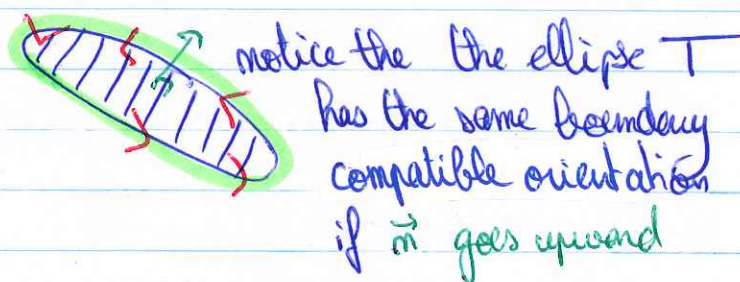 notice the the ellipse T
has the same boundary
compatible orientation
if n⃗ goes upward